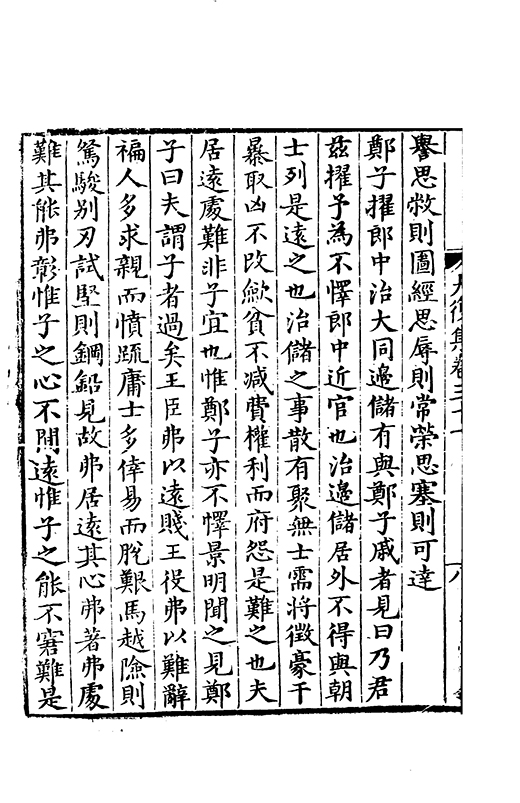 譽思救則圖經思辱則常榮思塞則可達
鄭子擢郎中治大同邊儲有與鄭子戚者見曰乃君
茲擢予為不懌郎中近官也治邊儲居外不得與朝
士列是遠之也治儲之事散有聚無士需將徵豪干
暴取凶不改歛貧不減費權利而府怨是難之也夫
居遠處難非子宜也惟鄭子亦不懌景明聞之見鄭
子曰夫謂子者過矣王臣弗以遠賤王役弗以難辭
褊人多求親而憤疏庸士多倖易而脫艱馬越險則
駑駿别刃試堅則鋼鉛見故弗居遠其心弗著弗處
難其能弗彰惟子之心不閒遠惟子之能不窘難是
大復集卷三十七
八